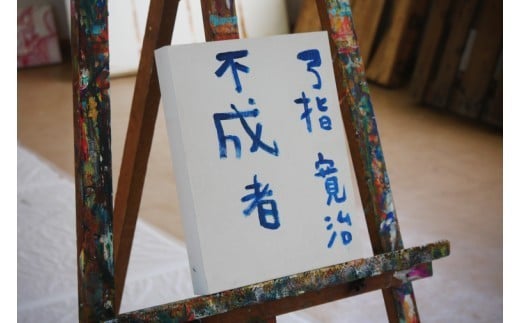 弓指 寛治
不成者